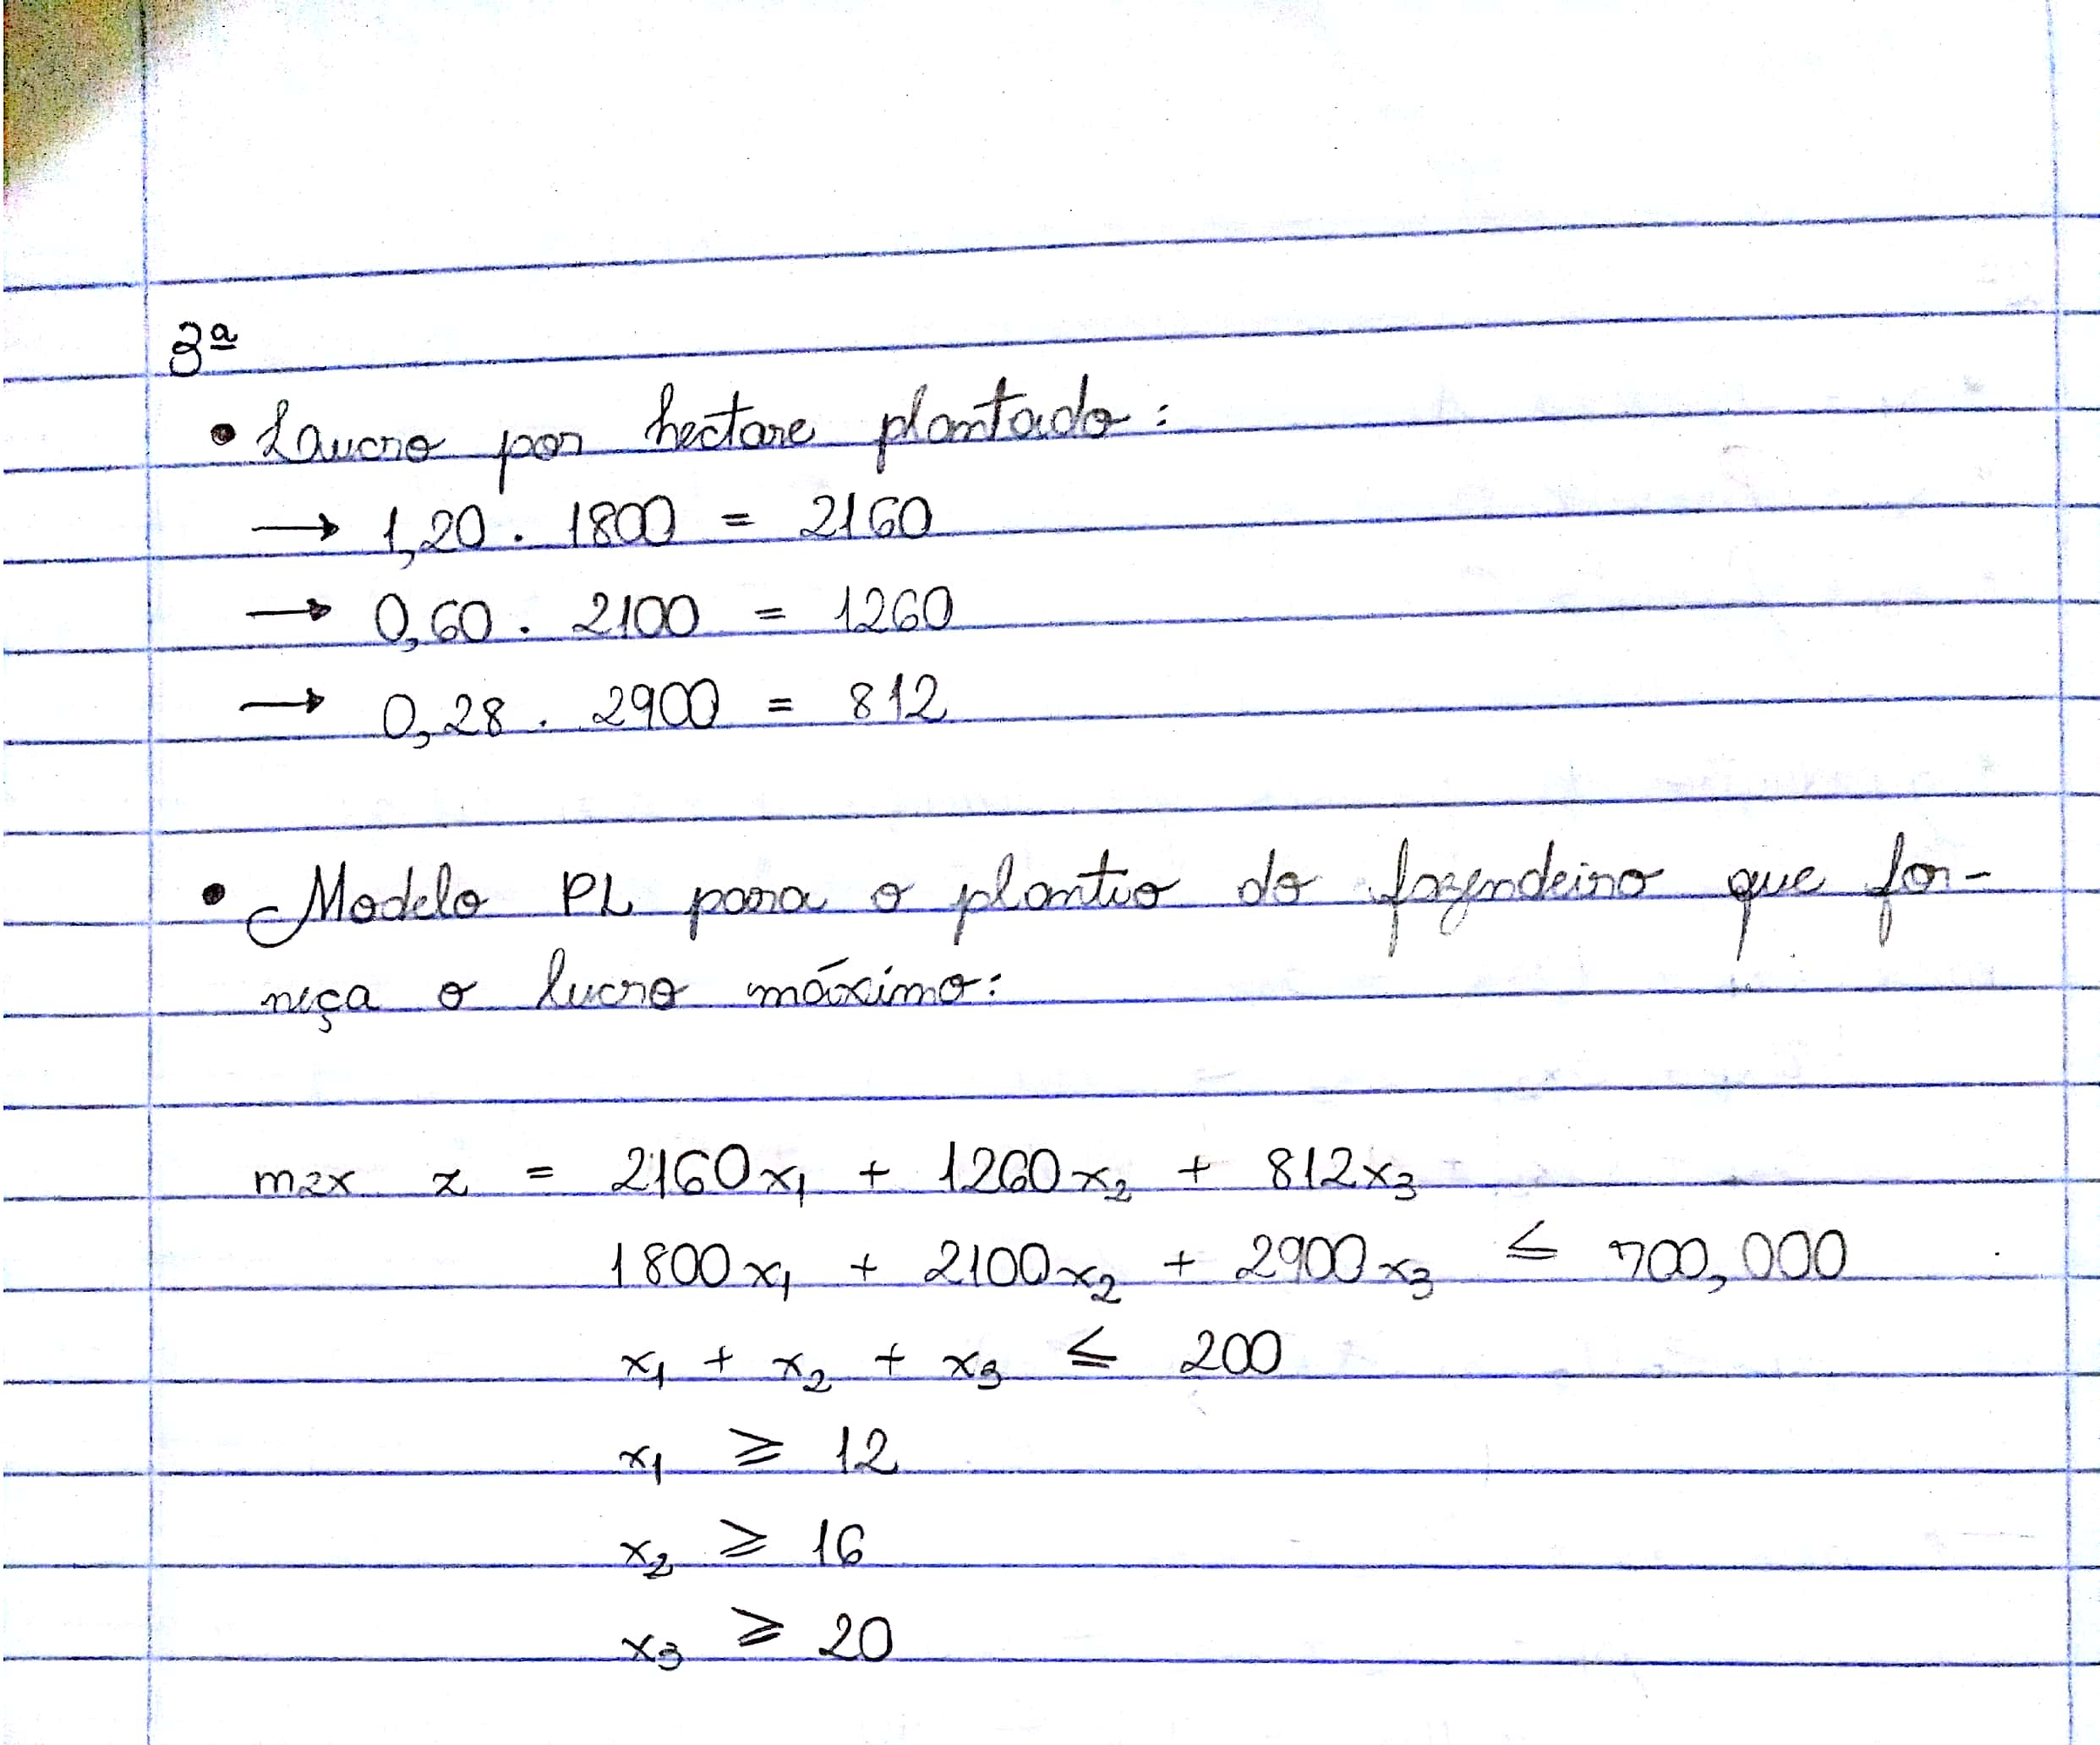 3ª
• Laucro por hectare plantado:
→ 1,20 . 1800 = 2160
→ 0,60 . 2100 = 1260
→ 0,28 . 2900 = 812
• Modelo PL para o plantio do fazendeiro que for-
neça o lucro máximo:
max z = 2160x₁ + 1260x₂ + 812x₃
1800x₁ + 2100x₂ + 2900x₃ ≤ 700,000
x₁ + x₂ + x₃ ≤ 200
x₁ ≥ 12
x₂ ≥ 16
x₃ ≥ 20